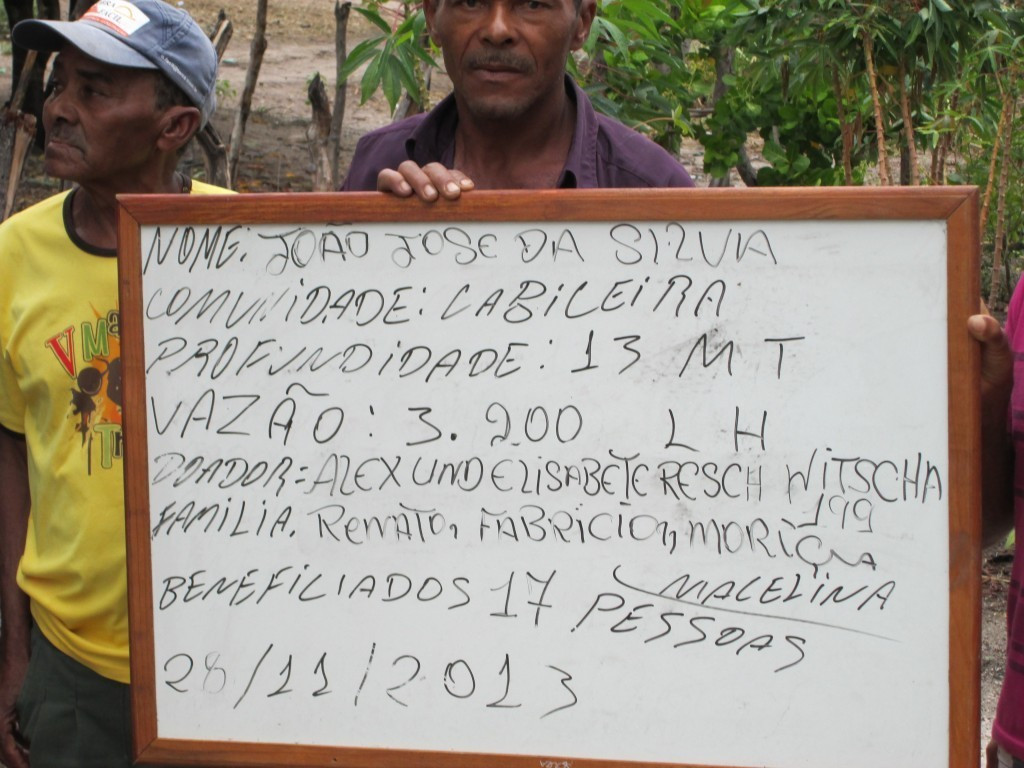 NOME: JOÃO JOSE DA SILVA
COMUNIDADE: CABILEIRA
PROFUNDIDADE: 13 MT
VAZÃO: 3.200 LH
DOADOR=ALEX UND ELISABETE RESCH WITSCHA
199
FAMILIA. RENATO, FABRICIO, MORIÇA
MACELINA
BENEFICIADOS 17 PESSOAS
28/11/2013